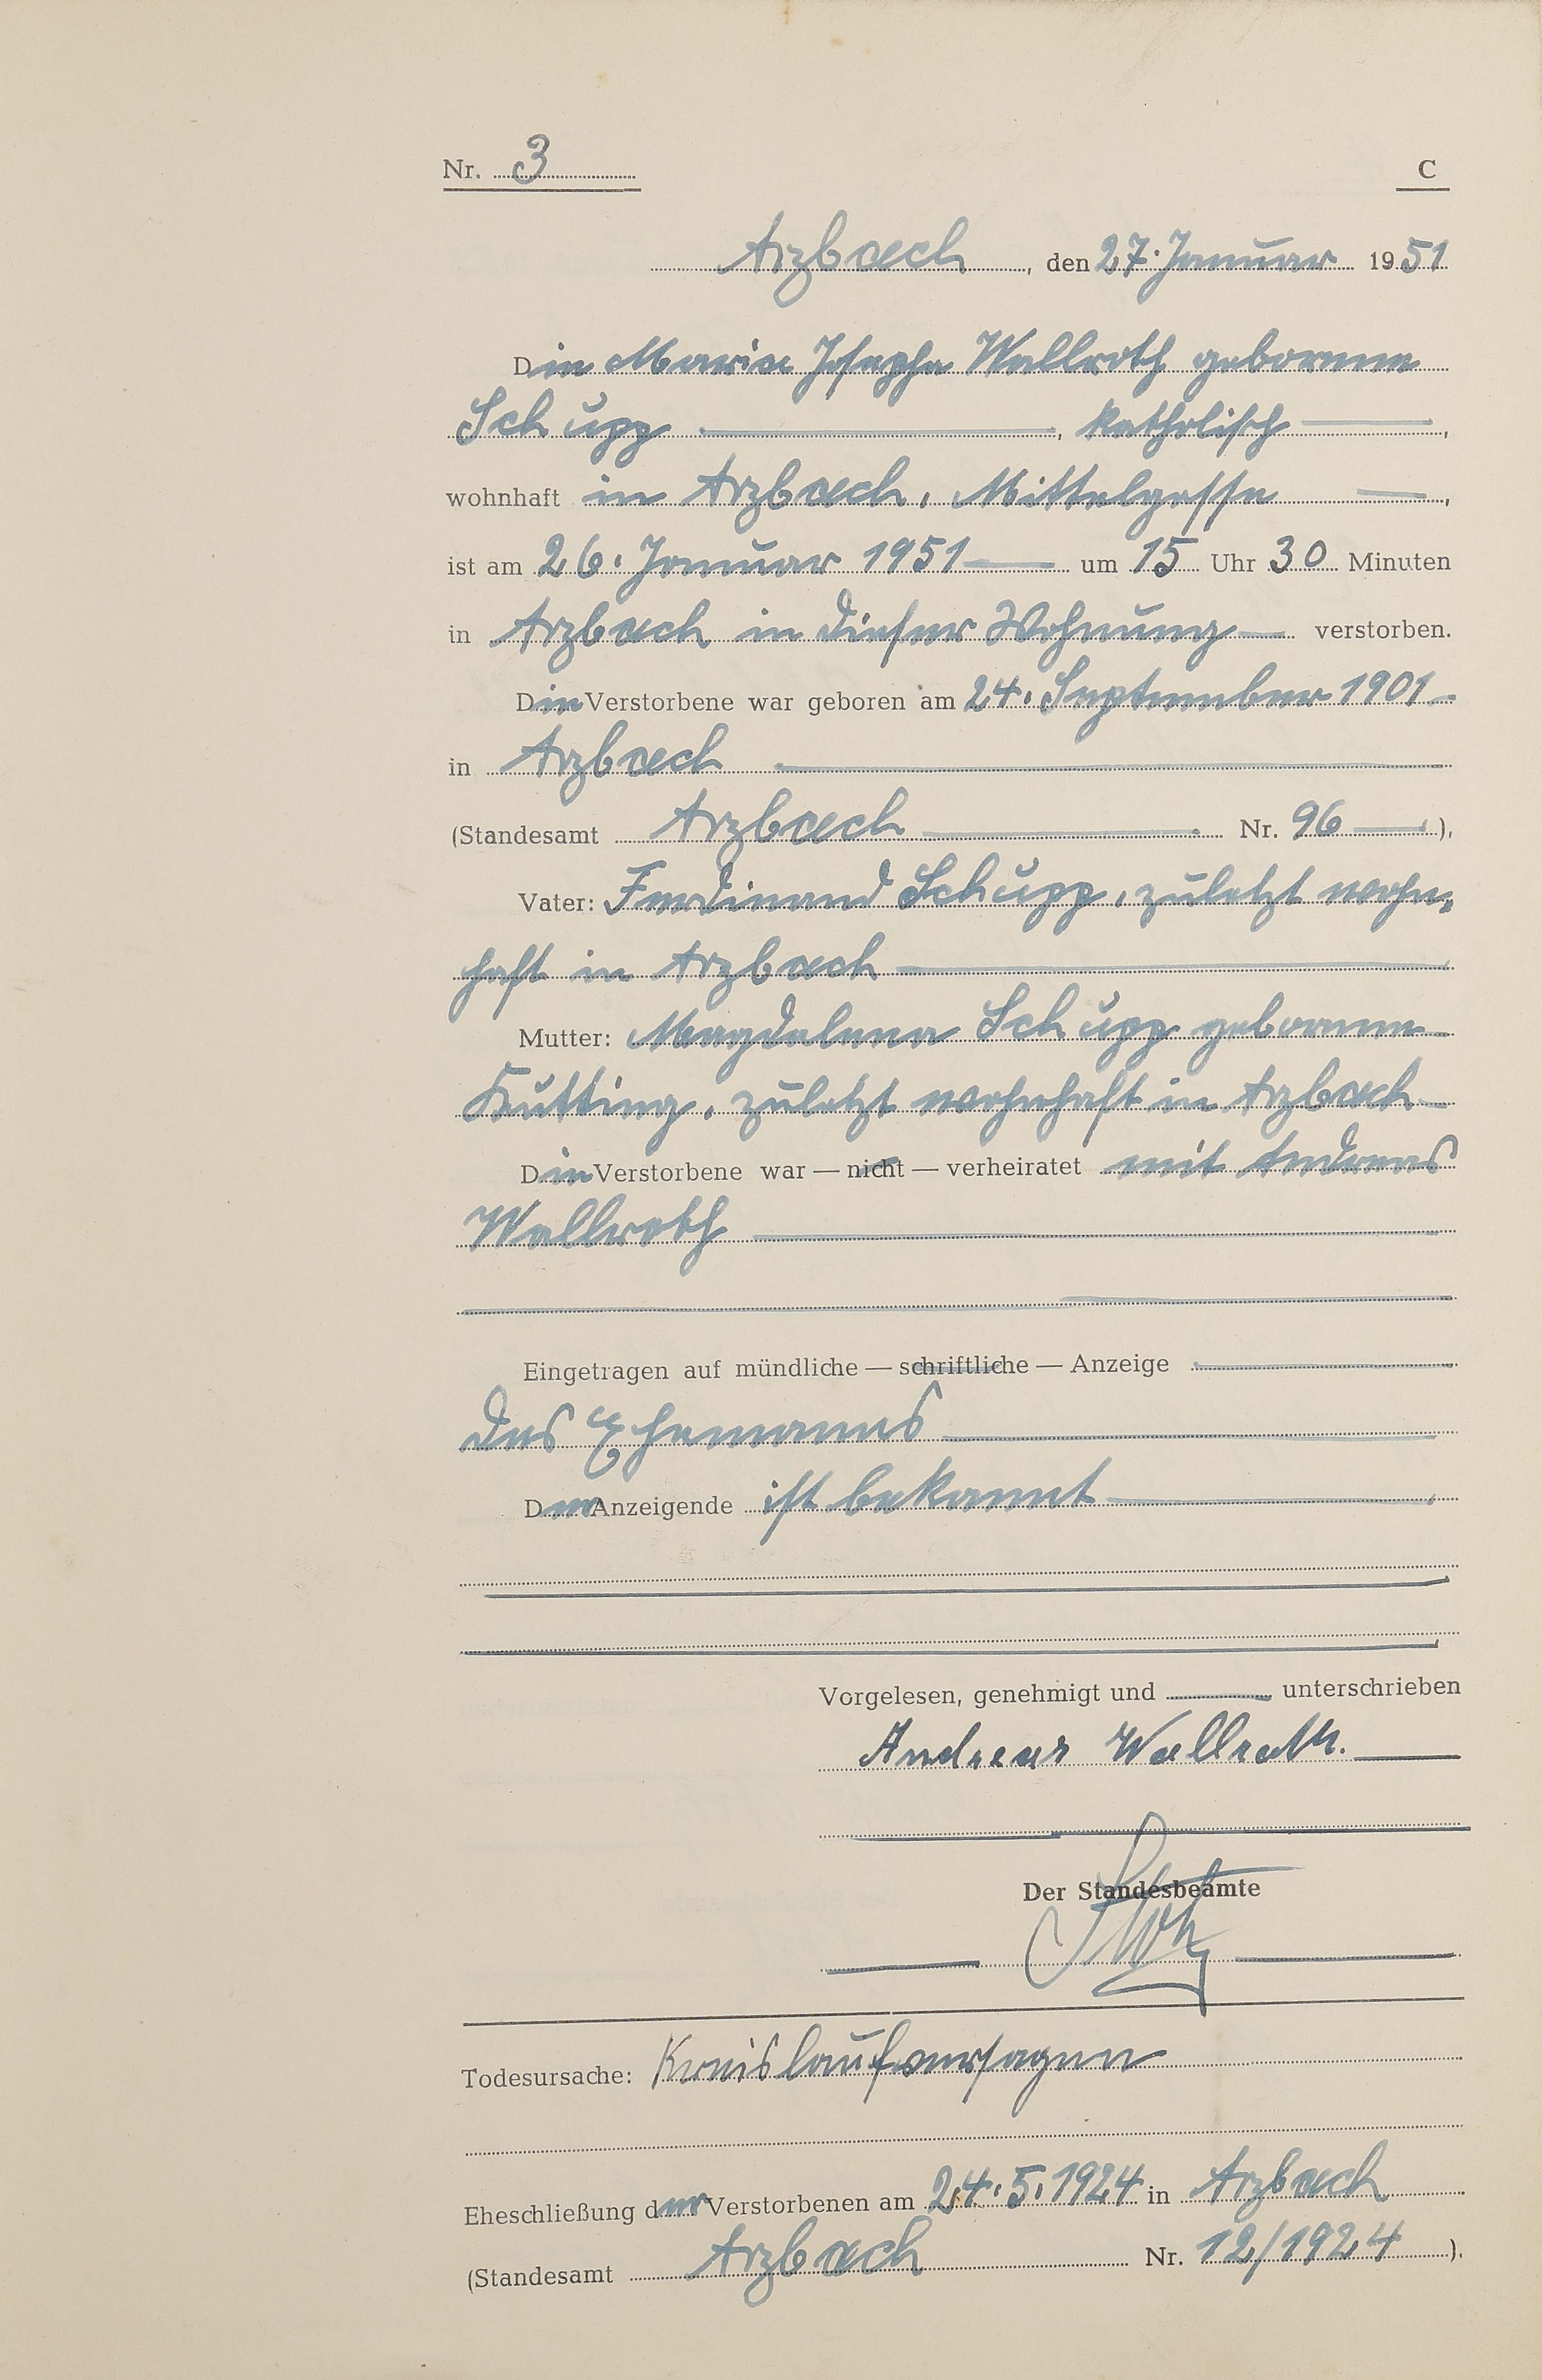 Nr. 3 C
Arzbach, den 27. Januar 1951
Die Maria Josepha Wallroth geborene
Schupp, katholisch,
wohnhaft in Arzbach, Mittelgasse,
ist am 26. Januar 1951 um 15 Uhr 30 Minuten
in Arzbach in dieser Wohnung verstorben.
Die Verstorbene war geboren am 24. September 1901
in Arzbach
(Standesamt Arzbach Nr. 96).
Vater: Ferdinand Schupp, zuletzt wohn-
haft in Arzbach
Mutter: Magdalena Schupp geborene
zuletzt wohnhaft in Arzbach
Die Verstorbene war — nicht — verheiratet mit Andreas
Wallroth
Eingetragen auf mündliche — schriftliche — Anzeige
des Ehemannes
Der Anzeigende ist bekannt
Vorgelesen, genehmigt und unterschrieben
Andreas Wallroth.
Der Standesbeamte
Todesursache: Kreislaufversagen
Eheschließung der Verstorbenen am 24.5.1924 in Arzbach
(Standesamt Arzbach Nr. 12/1924).